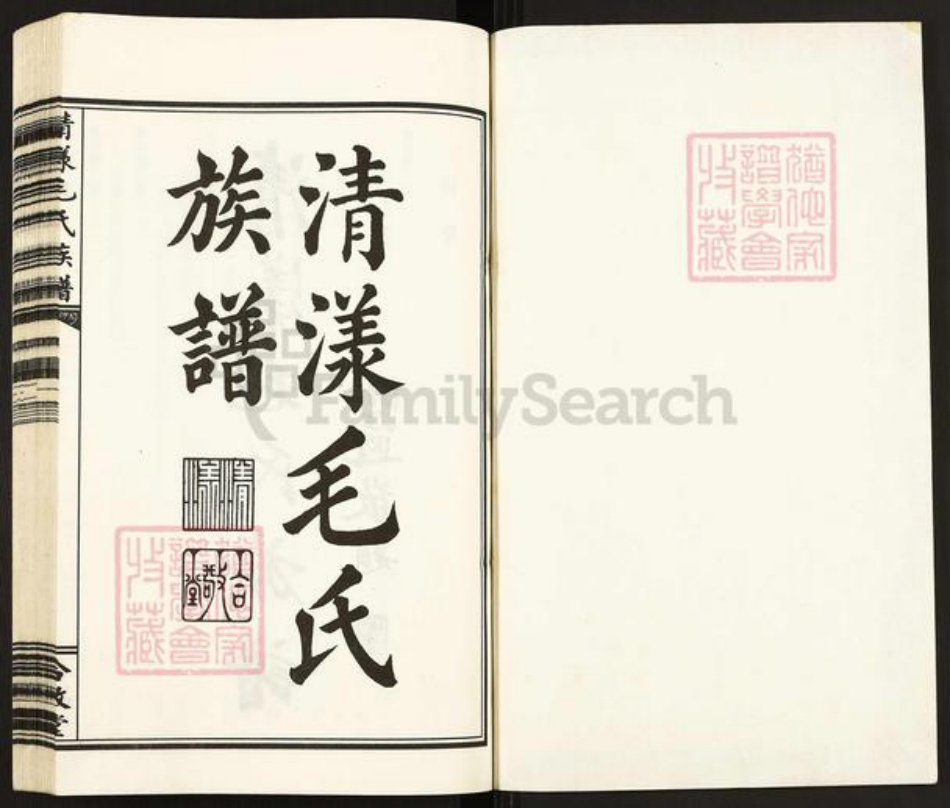 清漾毛氏
族譜
清漾
合敬堂
清漾毛氏族譜
合敬堂
猶他家
譜學會
收藏
猶他家
譜學會
收藏
FamilySearch